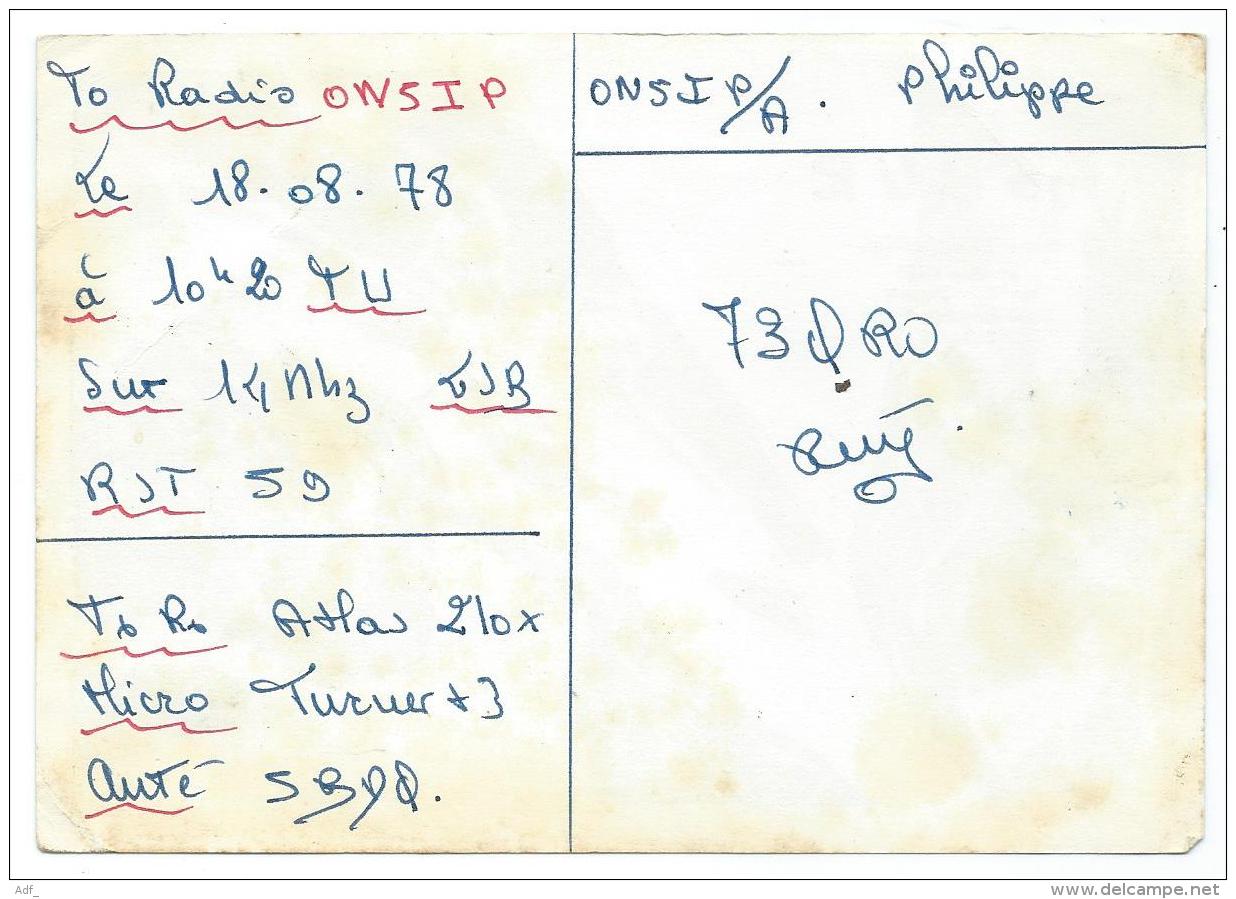 To Radio ON5IP
Le 18.08.78
à 10h20 TU
Sur 14 Mhz LSB
RST 59
Tx Rx Atlas 210x
Micro Turner +3
Anté
ON5IP/A. Philippe
73 QRO
Adf_
www.delcampe.net